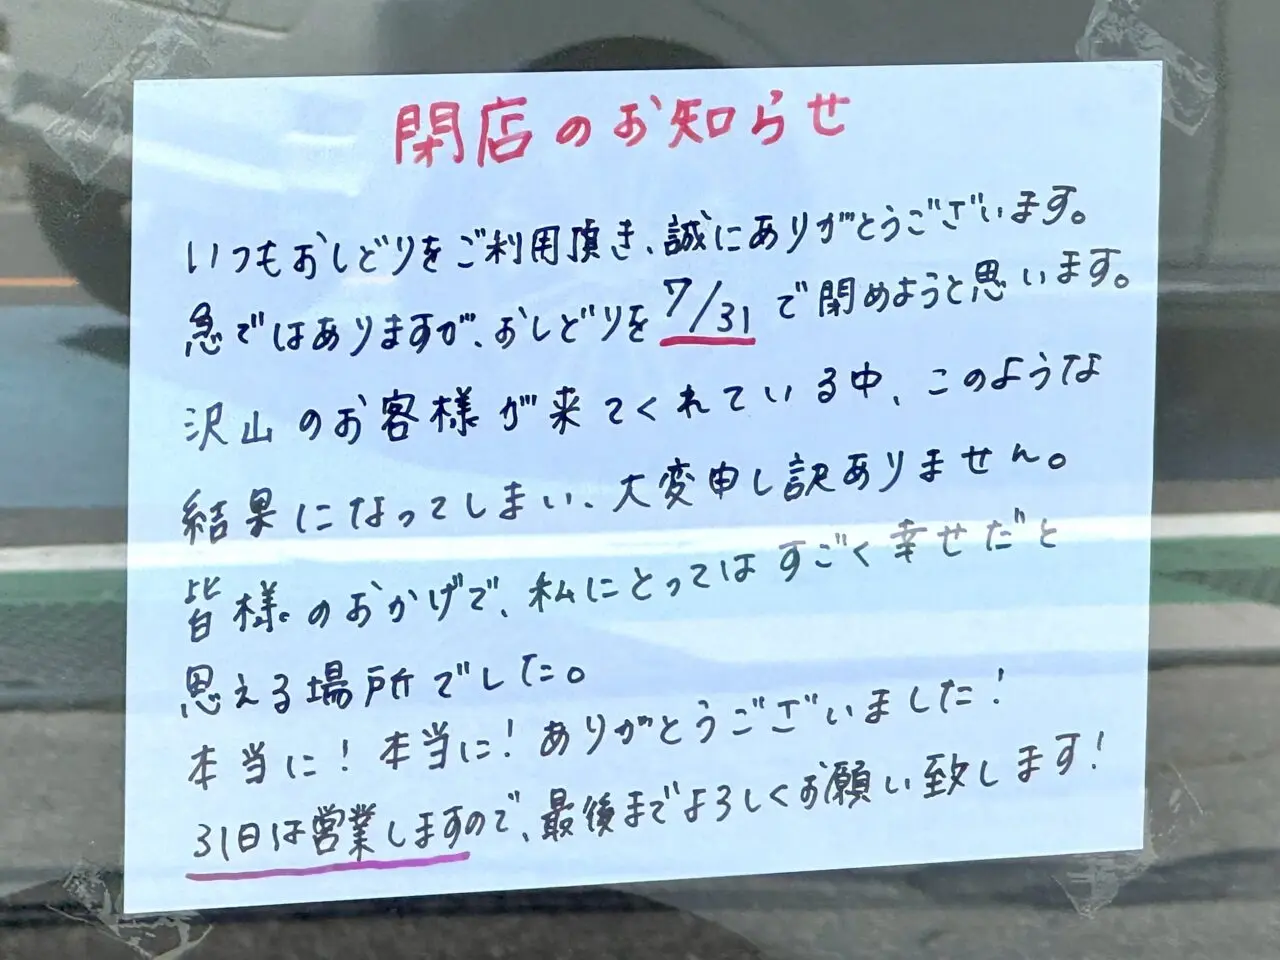 閉店のお知らせ
いつもおしどりをご利用頂き、誠にありがとうございます。
急ではありますが、おしどりを7/31で閉めようと思います。
沢山のお客様が来てくれている中、このような
結果になってしまい、大変申し訳ありません。
皆様のおかげで、私にとってはすごく幸せだと
思える場所でした。
本当に!本当に!ありがとうございました!
31日は営業しますので、最後までよろしくお願い致します!